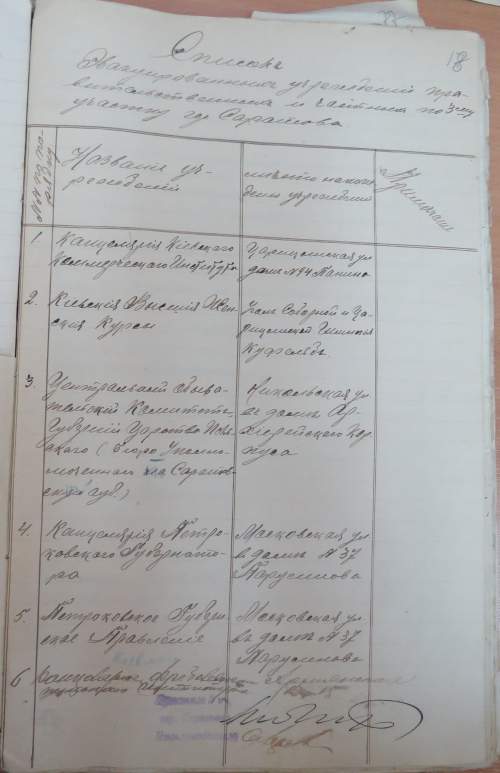 18
Списокъ
Эвакуированныхъ учрежденій пра-
вительственныхъ и частныхъ по 3му
участку гор Саратова
№№ по по-
рядку
Названіе уч-
режденій
мѣсто нахож-
денія учрежденія
Примѣчаніе
1. Канцелярія Кіевскаго
Коммерческаго Института
Царицынская ул
домъ №94 Панина
2. Кіевскія Высшія Жен-
скія Курсы
Уголъ Соборной и Ца-
рицынской
Куфельдъ
3 Центральный Обыва-
тельскій Комитетъ
Губерній Царства Поль-
скаго (бюро Уполно-
моченнаго на Саратов-
ской губ.)
Никольская ул
въ домѣ Ар-
хіерейскаго Кор-
пуса
4. Канцелярія Петро-
ковскаго Губернато-
ра
Московская ул
въ домѣ № 37
Парусинова
5. Петроковское Губерн-
ское Правленіе
Московская ул
въ домѣ № 37
Парусинова
6